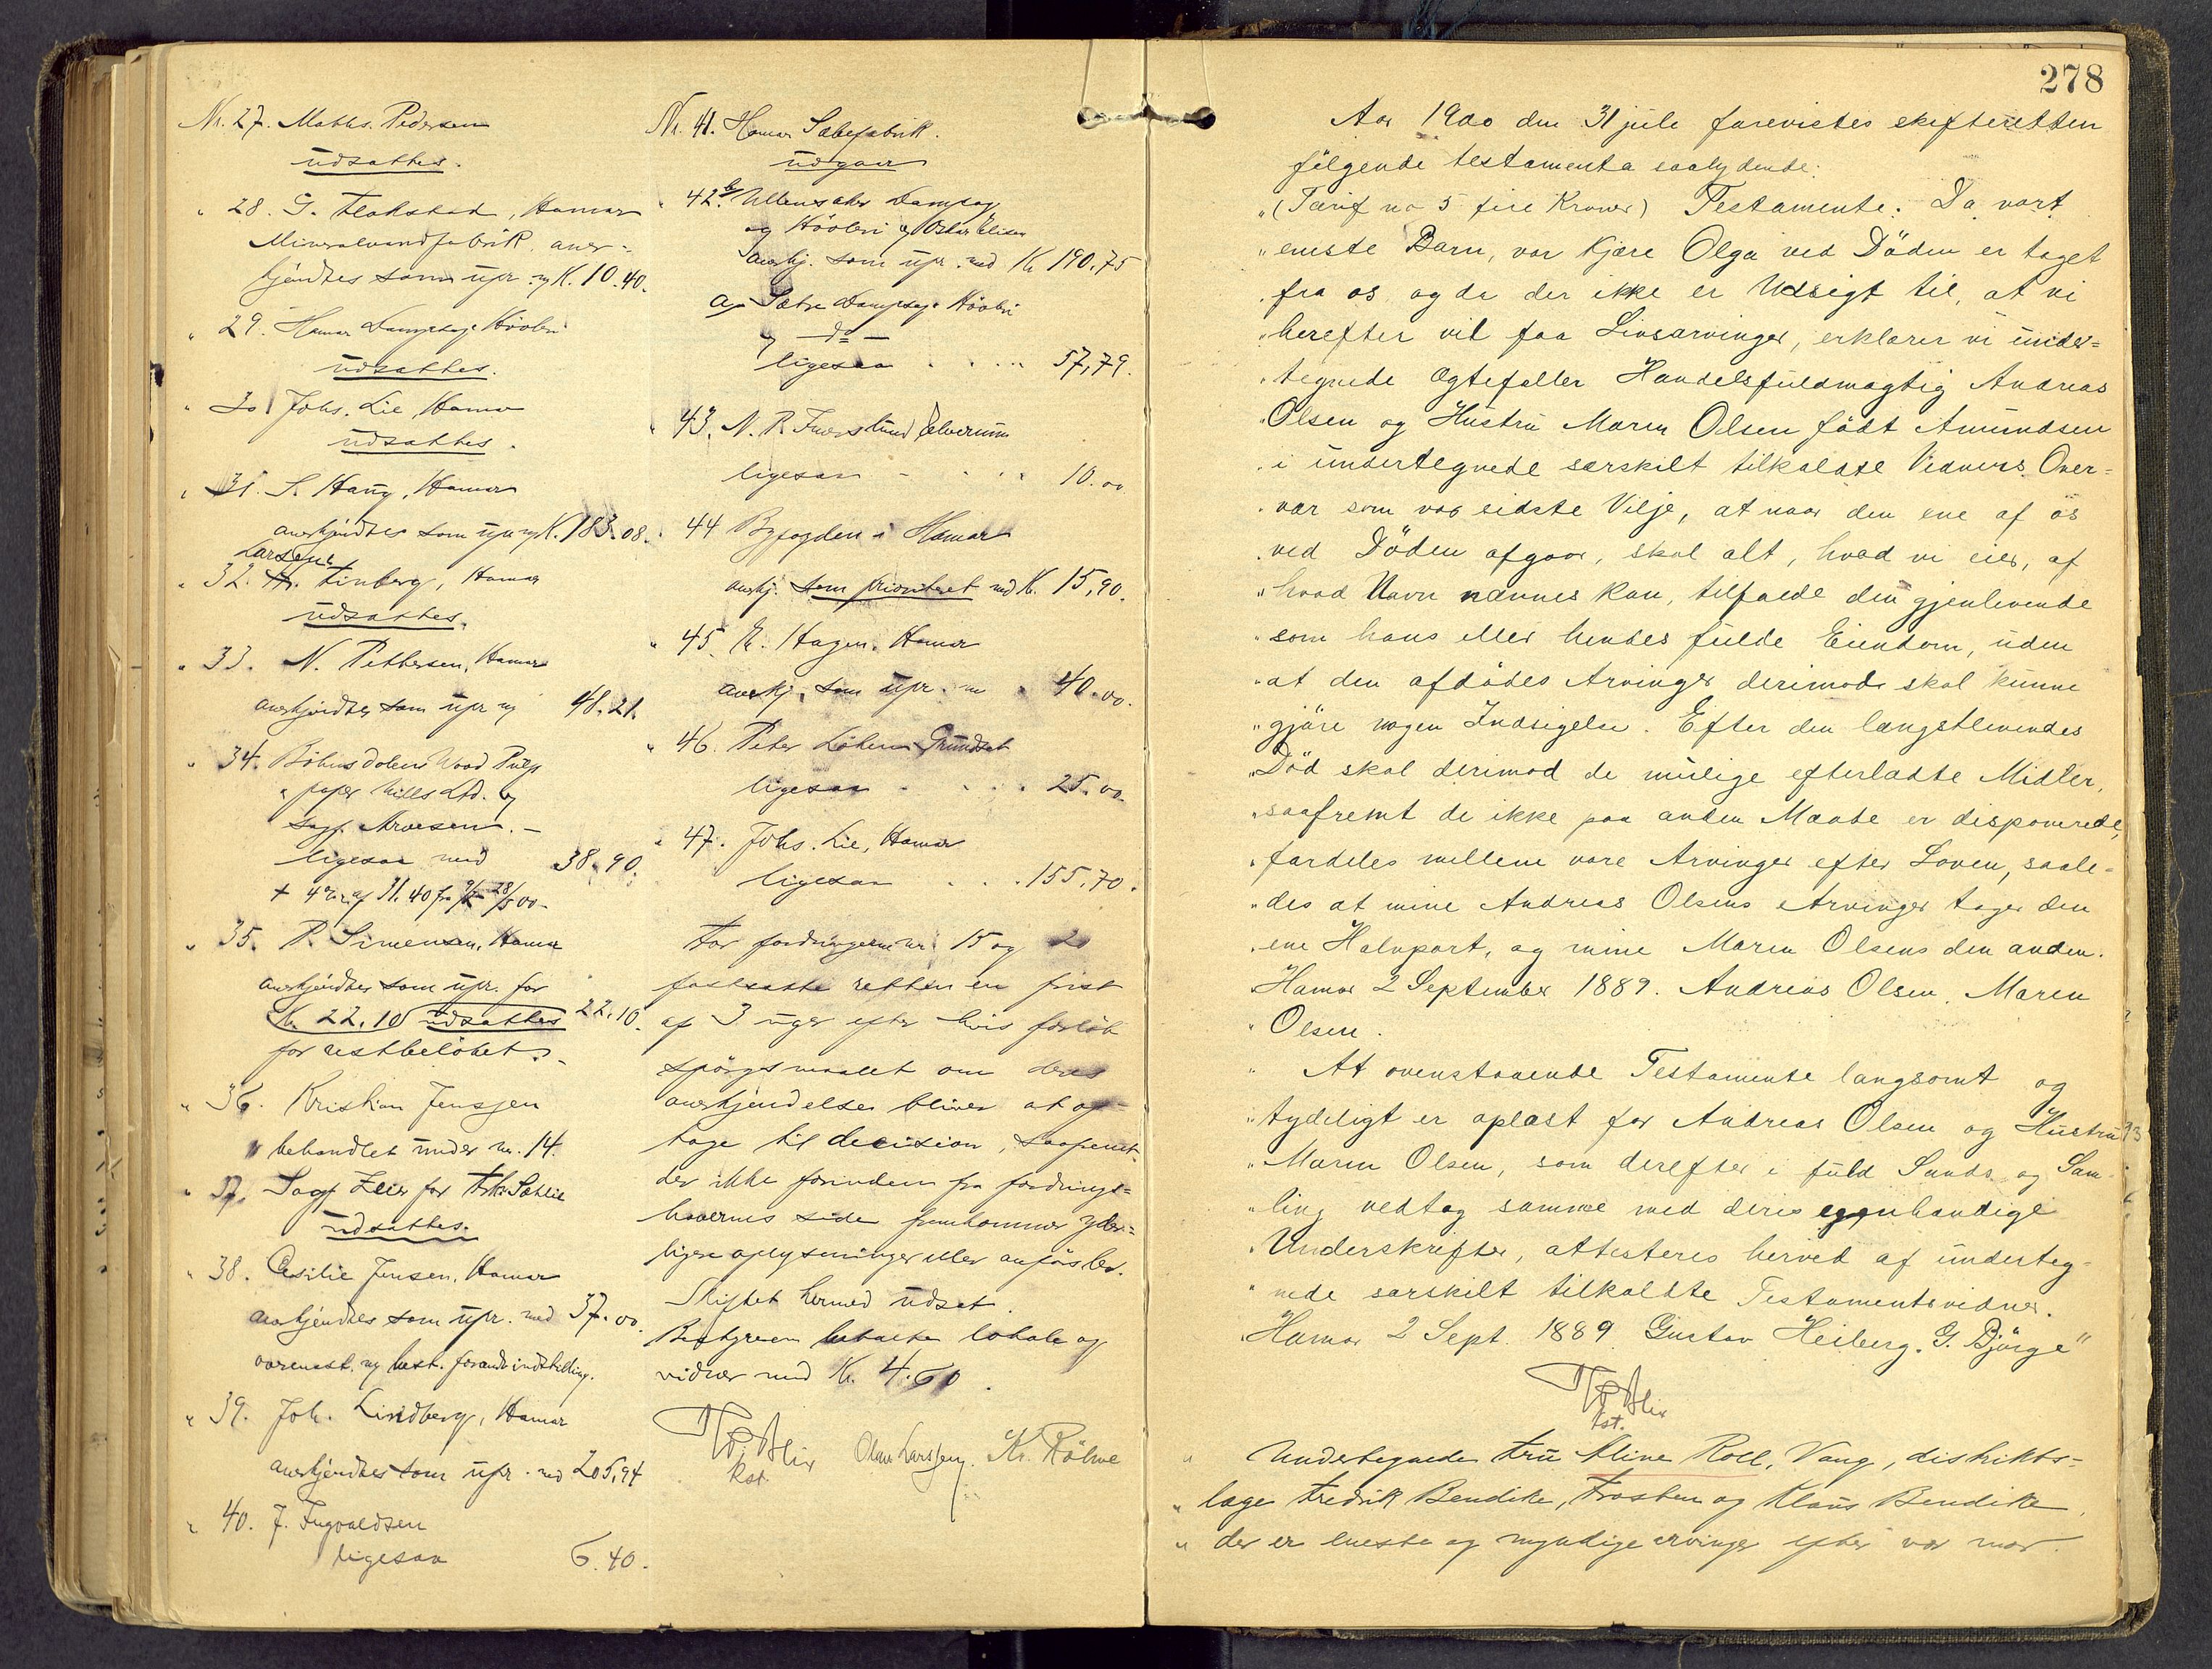 Nr. 27. Maths. Pedersen
udsattes.
" 28. G. Flakstad, Hamar
Mineralvandfabrik, aner-
kjendtes som upr. m K. 10.40.
" 29. Hamar Dampsag & Høvleri
udsattes.
" 30 Johs. Lie, Hamar
udsattes.
" 31. S. Haug, Hamar
anerkjendtes som upr. m K. 183.08.
Larsen
" 32. Finberg, Hamar
udsattes.
" 33. N. Pettersen, Hamar
anerkjendtes som upr m 48.21.
" 34. Böhnsdalens Wood Pulp
& paper Mills Ltd. v
sagf. Arnesen. -
ligesaa med 38.90.
+ 4% af 31.40 fra 28/5 00-
" 35. P. Simensen, Hamar
anerkjendtes som upr. for
Kr. 22.10 udsattes 22.10.
for restbelöbet. -
" 36. Kristian Jenssen
behandlet under nr. 14.
" 37. Sagf Zeier for Fr. Sæhlie
udsattes.
" 38. Cesilie Jensen, Hamar
anerkjendtes som upr. med 37.00.
overenst. m best. forand. indstilling.
" 39. Joh. Lindberg, Hamar
anerkjendtes som upr. med 205,94
" 40. J. Ingvaldsen
ligesaa 6.40.
Nr. 41. Hamar Sæbefabrik.
udgaar
" 42. b/ Ullensaker Dampsag
og Hövleri v/ Oskar Olsen
anerkj. som upr. med Kr 190.75
a/ Sætre Dampsag & Hövleri
v - do -
ligesaa . . . . . 57,79.
" 43. N. R. Furuslund Elverum
ligesaa - . . . 10.00
" 44 Byfogden i Hamar
anerkj. som prioriteret med K. 15,90.
" 45. K. Hagen, Hamar
anerkj. som upr. m " 40.00.
" 46. Peter Löken Grundset
ligesaa . . . . 25.00.
" 47. Johs. Lie, Hamar
ligesaa . . . 155,70.
For fordringerne nr. 15 og 20
fastsatte retten en frist
af 3 uger efter hvis forløb
spörgsmaalet om deres
anerkjendelse bliver at op-
tage til decision, saafremt
der ikke forinden fra fordrings-
havernes side fremkommer yder-
ligere oplysninger eller anförsler.
Skiftet hermed udsat.
Bestyreren betalte lokale og
vidner med K. 4.60.
Th. Blix Olaus Larssen. Kr. Röhne
kst.
278
Aar 1900 den 31 juli forevistes skifteretten
følgende testamenta saalydende:
" (Tarif no 5 fire Kroner) Testamente: Da vort
" eneste Barn, vor kjære Olga ved Döden er taget
" fra os, og da der ikke er Udsigt til, at vi
" herefter vil faa Livsarvinger, erklærer vi under-
" tegnede Ægtefæller Handelsfuldmægtig Andreas
" Olsen og Hustru Maren Olsen født Amundsen
" i undertegnede særskilt tilkaldte Vidners Over-
" vær som vor sidste Vilje, at naar den ene af os
" ved Döden afgaar, skal alt, hvad vi eier, af
" hvad Navn nævnes kan, tilfalde den gjenlevende
" som hans eller hendes fulde Eiendom, uden
" at den afdødes Arvinger derimod skal kunne
" gjøre nogen Indsigelse. Efter den længstlevendes
" Död skal derimod de mulige efterladte Midler,
" saafremt de ikke paa anden Maade er disponerede,
" fordeles mellem vore Arvinger efter Loven, saale-
" des at mine Andreas Olsens Arvinger tager den
" ene Halvpart, og mine Maren Olsens den anden.
" Hamar 2 September 1889. Andreas Olsen. Maren
" Olsen.
" At ovenstaaende Testamente langsomt og
" tydeligt er oplæst for Andreas Olsen og Hustru
" Maren Olsen, som derefter i fuld Sands og Sam-
" ling vedtog samme med deres egenhændige
" Underskrifter, attesteres herved af underteg-
" nede særskilt tilkaldte Testamentsvidner.
" Hamar 2 Sept. 1889 Gustav Heiberg. G. Bjørge"
Th. Blix
kst.
" Undertegnede Fru Aline Roll, Vang, distrikts-
" læge Fredrik Bendeke, Trosten og Klaus Bendeke,
" der er eneste og myndige arvinger efter vor mor